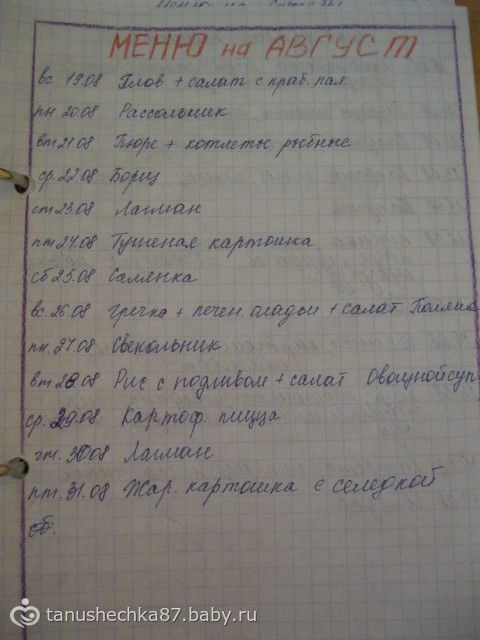 МЕНЮ на АВГУСТ
вс 19.08 Плов + салат с краб. пал.
пн 20.08 Рассольник
вт 21.08 Пюре + котлеты рыбные
ср. 22.08 Борщ
чт 23.08 Лагман
пт 24.08 Тушеная картошка
сб 25.08 Салянка
вс. 26.08 гречка + печен. оладьи + салат Полянка
пн. 27.08 Свекольник
вт. 28.08 Рис с подливом + салат Овощной суп
ср. 29.08 Картоф. пицца
чт. 30.08 Лагман
пт. 31.08 Жар. картошка с селедкой
сб.
tanushechka87.baby.ru